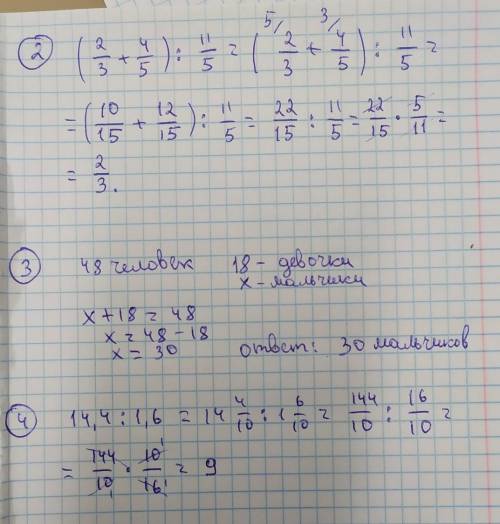 2 (2/3 + 4/5) : 11/5 = (5/ 2/3 + 3/ 4/5) : 11/5 =
= (10/15 + 12/15) : 11/5 = 22/15 : 11/5 = 22/15 · 5/11 =
= 2/3.
3 48 человек 18 - девочки
x - мальчики
x + 18 = 48
x = 48 - 18
x = 30 ответ: 30 мальчиков
4 14,4 : 1,6 = 14 4/10 : 1 6/10 = 144/10 : 16/10 =
= 144/10 1 · 10 1/16 1 = 9